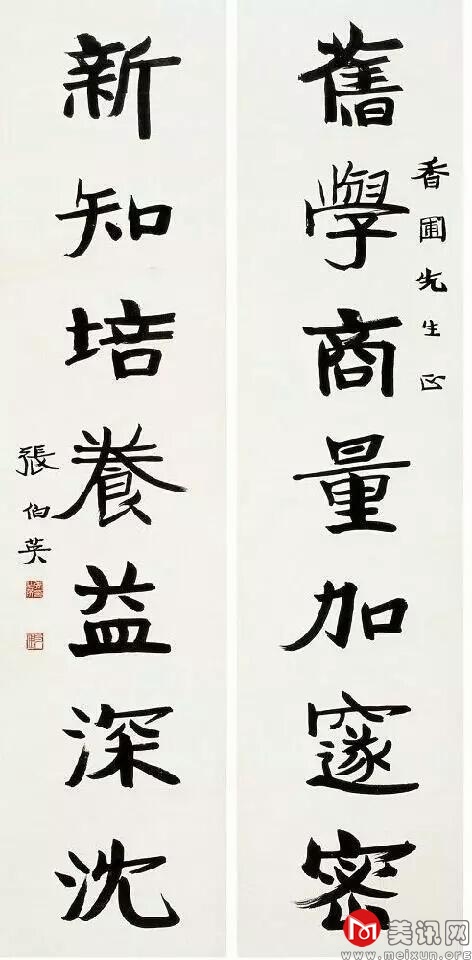 香圃先生正
舊學商量加邃密
新知培養益深沈
張伯英
美讯网
www.meixun.org